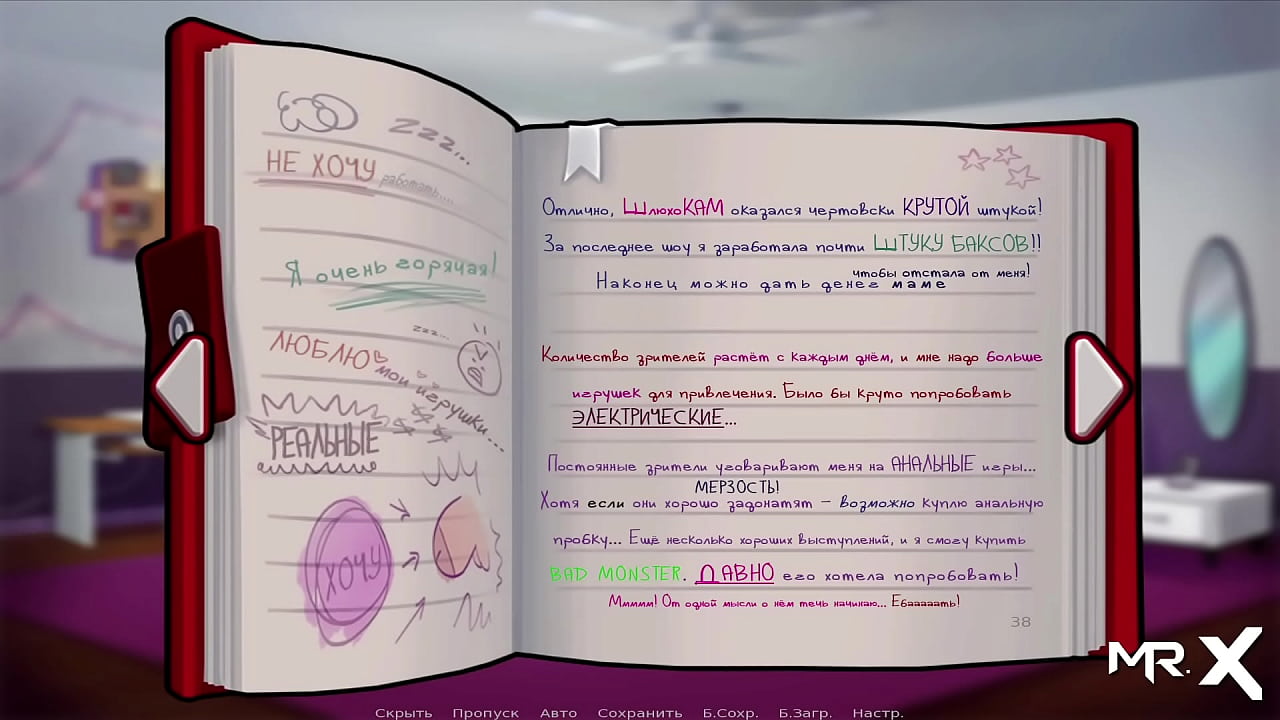 zzz...
НЕ ХОЧУ работать....
Я очень горячая!
zzz...
ЛЮБЛЮ мои игрушки...
РЕАЛЬНЫЕ
ХОЧУ
Отлично, ШлюхоКАМ оказался чертовски КРУТОЙ штукой!
За последнее шоу я заработала почти ШТУКУ БАКСОВ!!
чтобы отстала от меня!
Наконец можно дать денег маме
Количество зрителей растёт с каждым днём, и мне надо больше
игрушек для привлечения. Было бы круто попробовать
ЭЛЕКТРИЧЕСКИЕ...
Постоянные зрители уговаривают меня на АНАЛЬНЫЕ игры...
МЕРЗОСТЬ!
Хотя если они хорошо задонатят – возможно куплю анальную
пробку... Ещё несколько хороших выступлений, и я смогу купить
BAD MONSTER. ДАВНО его хотела попробовать!
Ммммм! От одной мысли о нём течь начинаю... Ебааааать!
38
MR. X
Скрыть Пропуск Авто Сохранить Б.Сохр. Б.Загр. Настр.